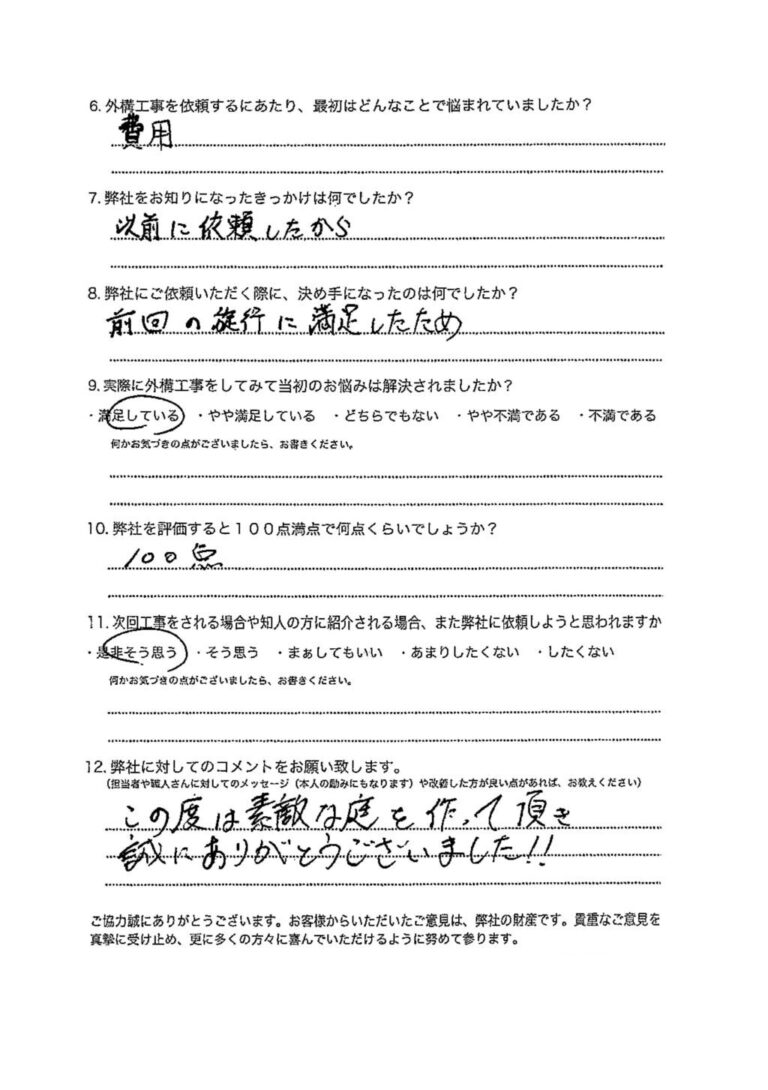 6. 外構工事を依頼するにあたり、最初はどんなことで悩まれていましたか？
費用
7. 弊社をお知りになったきっかけは何でしたか？
以前に依頼したから
8. 弊社にご依頼いただく際に、決め手になったのは何でしたか？
前回の施行に満足したため
9. 実際に外構工事をしてみて当初のお悩みは解決されましたか？
・満足している ・やや満足している ・どちらでもない ・やや不満である ・不満である
何かお気づきの点がございましたら、お書きください。
10. 弊社を評価すると１００点満点で何点くらいでしょうか？
100点
11. 次回工事をされる場合や知人の方に紹介される場合、また弊社に依頼しようと思われますか
・是非そう思う ・そう思う ・まぁしてもいい ・あまりしたくない ・したくない
何かお気づきの点がございましたら、お書きください。
12. 弊社に対してのコメントをお願い致します。
（担当者や職人さんに対してのメッセージ（本人の励みにもなります）や改善した方が良い点があれば、お教えください）
この度は素敵な庭を作って頂き
誠にありがとうございました!!
ご協力誠にありがとうございます。お客様からいただいたご意見は、弊社の財産です。貴重なご意見を
真摯に受け止め、更に多くの方々に喜んでいただけるように努めて参ります。